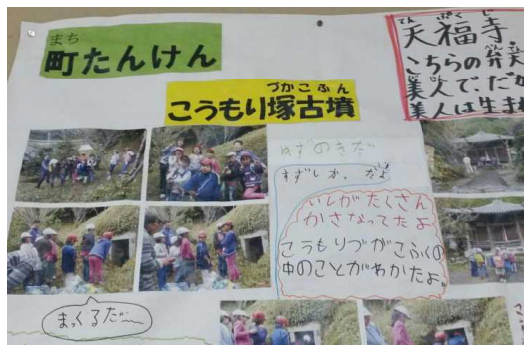 まち
町たんけん
づかこふん
こうもり塚古墳
てんぷくじ
天福寺
こちらの弁天
美人で、だか
美人は生ま
すずしか。だよ
いしがたくさん
かさなってたよ
こうもりづかこふんの
中のことがわかたよ。
まっくるだ〜